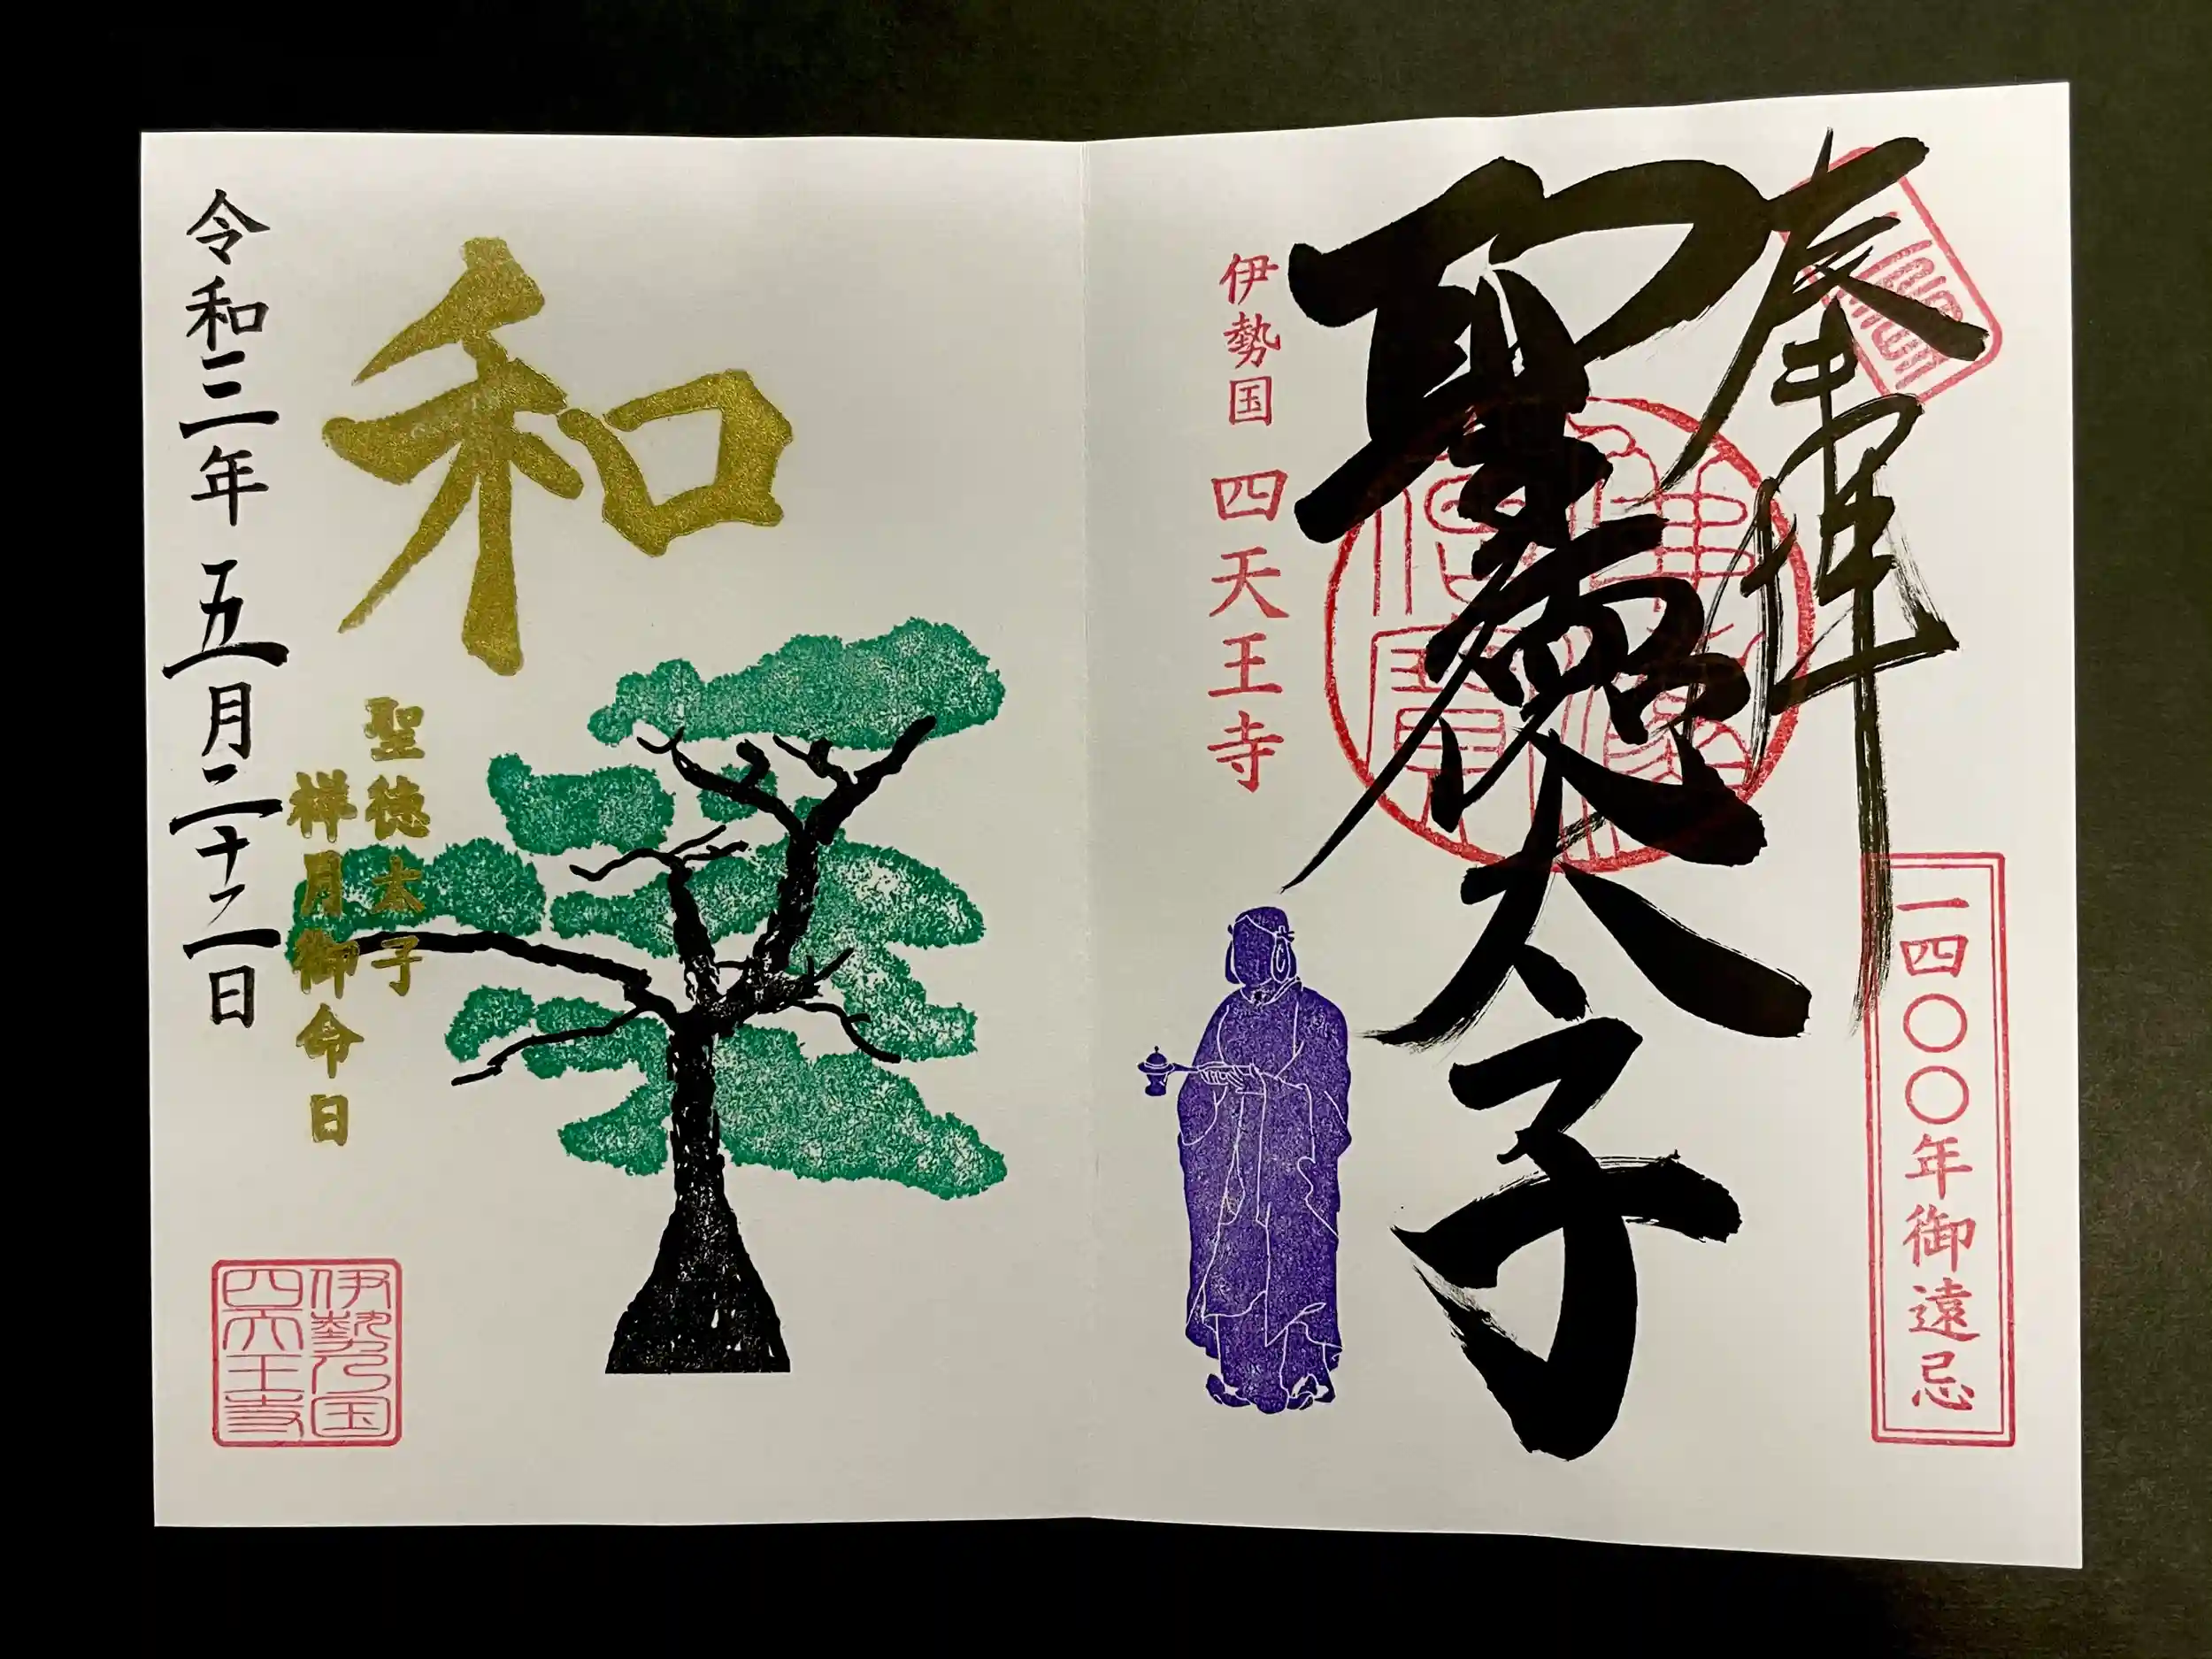 奉拝
一四〇〇年御遠忌
聖徳太子
伊勢国 四天王寺
和
聖徳太子
祥月御命日
令和三年 五月二十二日
伊勢国
四天王寺